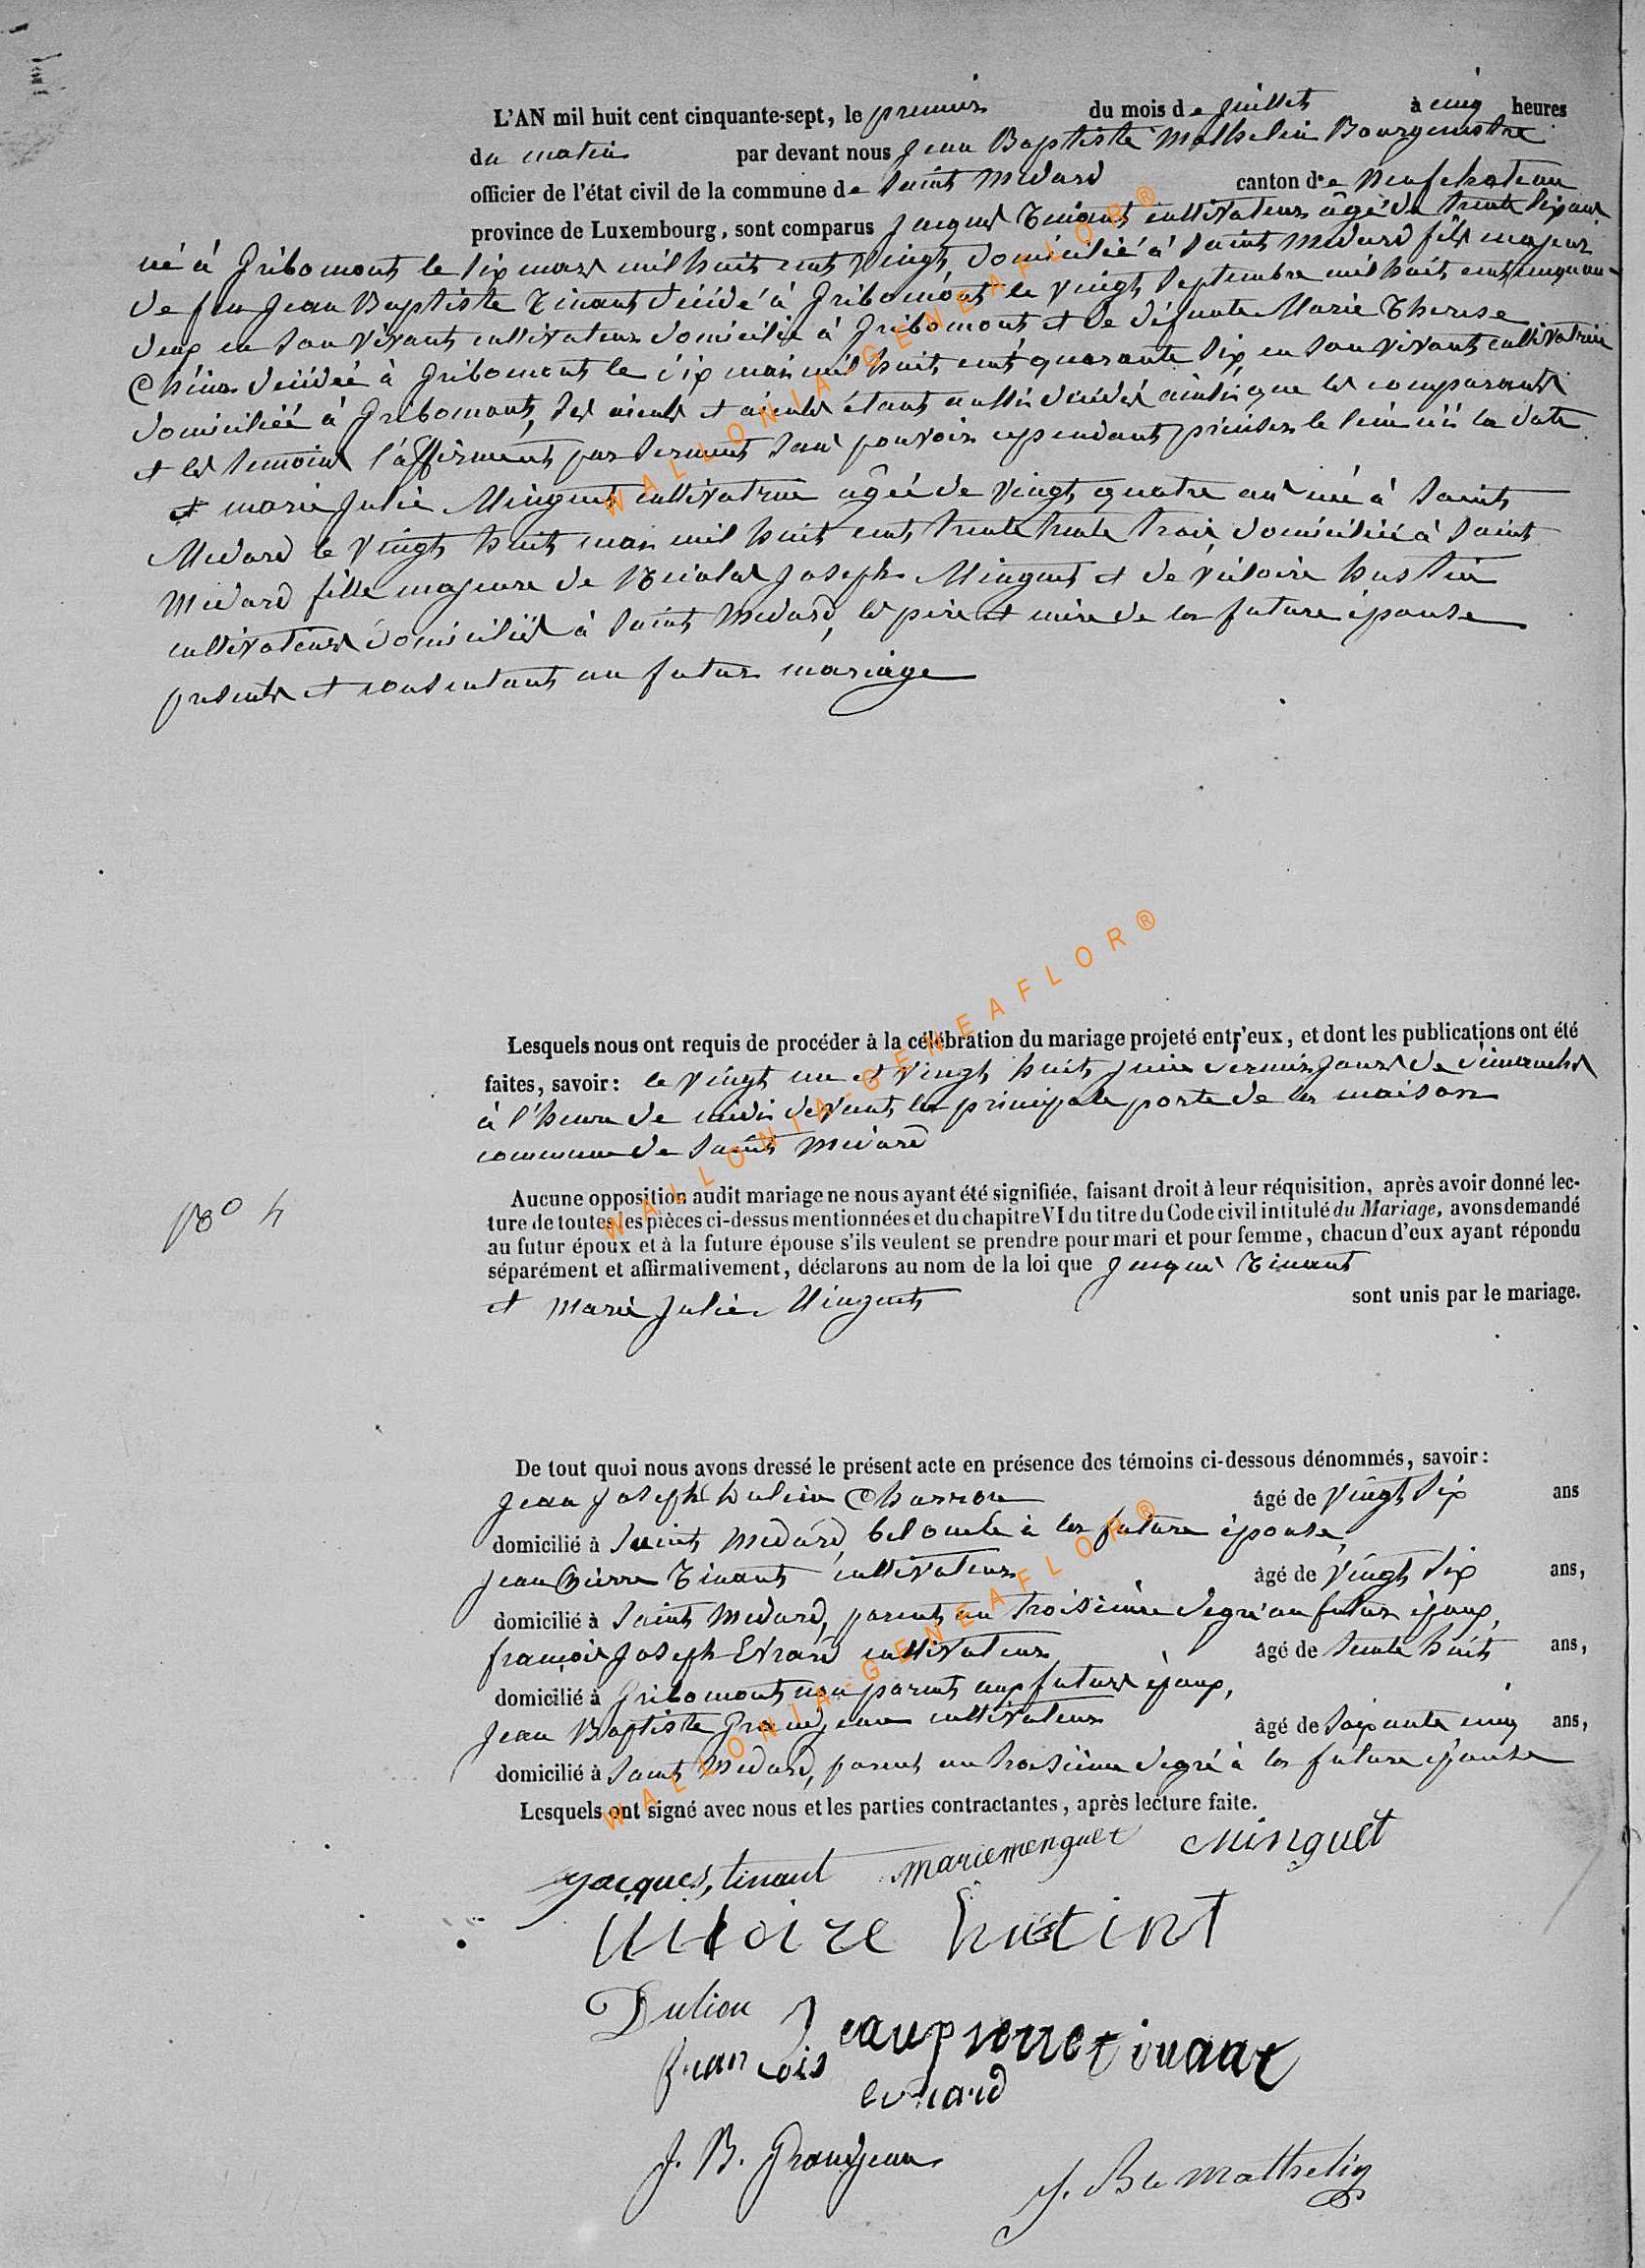 L'AN mil huit cent cinquante-sept, le premier du mois de juillet à cinq heures
du matin par devant nous Jean Baptiste Mathelin Bourgmestre
officier de l'état civil de la commune de Saint Medard canton de Neufchateau
province de Luxembourg, sont comparus Jacques Tinant cultivateur âgé de trente six ans
né à Gribomont le six mars mil huit cent vingt, domicilié à Saint Medard fils majeur
de feu Jean Baptiste Tinant décédé à Gribomont le vingt Septembre mil huit cent cinquan-
deux en son vivant cultivateur domicilié à Gribomont et de défunte Marie Therese
décédée à Gribomont le dix mai mil huit cent quarante six, en son vivant cultivatrice
domiciliée à Gribomont, ses aieuls et aieules étant aussi décédés ainsi que les comparants
et les temoins l'affirment par serment sans pouvoir cependant préciser le lieu ni la date
et marie Julie Minguet cultivatrice âgée de vingt quatre ans née à Saint
Medard le vingt huit mai mil huit cent trente trente trois, domiciliée à Saint
Medard fille majeure de Nicolas Joseph Minguet et de victoire hustin
cultivateurs domiciliés à Saint Medard, les père et mère de la future épouse
presents et consentant au futur mariage
Lesquels nous ont requis de procéder à la célébration du mariage projeté entr'eux, et dont les publications ont été
faites, savoir: le vingt un et vingt huit juin dernier jours de dimanches
à l'heure de midi devant la principale porte de la maison
commune de Saint Medard
N° 4
Aucune opposition audit mariage ne nous ayant été signifiée, faisant droit à leur réquisition, après avoir donné lec-
ture de toutes les pièces ci-dessus mentionnées et du chapitre VI du titre du Code civil intitulé du Mariage, avons demandé
au futur époux et à la future épouse s'ils veulent se prendre pour mari et pour femme, chacun d'eux ayant répondu
séparément et affirmativement, déclarons au nom de la loi que Jacques Tinant
et Marie Julie Minguet sont unis par le mariage.
De tout quoi nous avons dressé le présent acte en présence des témoins ci-dessous dénommés, savoir:
Jean Joseph Dulieu Charron âgé de vingt six ans
domicilié à Saint Medard, bel oncle à la future épouse,
Jean Pierre Tinant cultivateur âgé de vingt six ans,
domicilié à Saint Medard, parent au troisième degré au futur époux,
françois Joseph Evrard cultivateur âgé de trente huit ans,
domicilié à Gribomont non parent aux futurs époux,
Jean Baptiste Grandjean cultivateur âgé de soixante cinq ans,
domicilié à Saint Medard, parent au troisième degré à la future épouse
Lesquels ont signé avec nous et les parties contractantes, après lecture faite.
Jacques, tinant marie menguet Minguet
Victoire hustint
Dulieu Jean pierre tinant
francois evrard
J. B. Grandjean
J. Bte Mathelin
WALLONIA-GENEAFLOR®
WALLONIA-GENEAFLOR®
WALLONIA-GENEAFLOR®